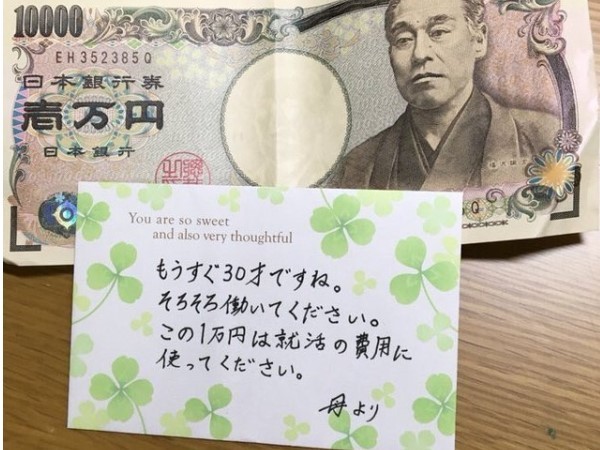 10000
EH352385Q
日本銀行券
壱万円
日本銀行
You are so sweet
and also very thoughtful
もうすぐ30才ですね。
そろそろ働いてください。
この1万円は就活の費用に
使ってください。
母より